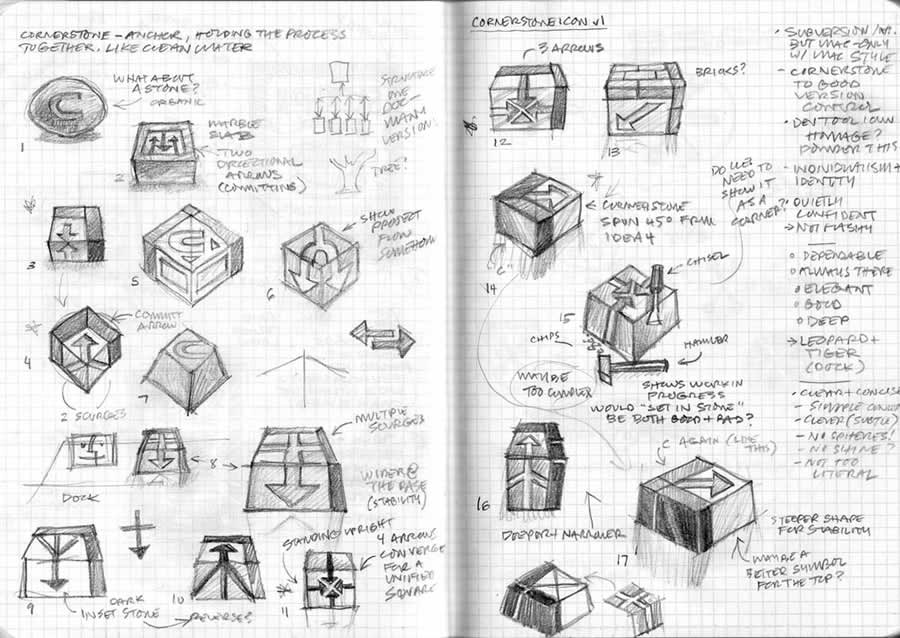 CORNERSTONE – ANCHOR, HOLDING THE PROCESS
TOGETHER. LIKE CLEAN WATER
WHAT ABOUT
A STONE?
ORGANIC
1
MARBLE
SLABS
TWO
DIRECTIONAL
ARROWS
(COMMITTING)
2
ONE
DOC
MANY
VERSIONS
TREE?
3
5
SHOW
PROJECT
FLOW
SOMEHOW
6
COMMIT
ARROW
4
7
2 SOURCES
8
DOCK
MULTIPLE
SOURCES
WIDER @
THE BASE
(STABILITY)
9
DARK
INSET STONE
10
REVERSE?
STANDING UPRIGHT
4 ARROWS
CONVERGE
FOR A
UNIFIED
SQUARE
11
CORNERSTONE ICON v1
3 ARROWS
12
BRICKS?
13
CORNERSTONE
SPUN 45° FROM
IDEA 4
14
DO WE NEED TO
SHOW IT
AS A
CORNER?
CHISEL
15
CHIPS
HAMMER
MAYBE
TOO COMPLEX
SHOWS WORK IN
PROGRESS
WOULD "SET IN STONE"
BE BOTH GOOD + BAD?
16
DEEPER + NARROWER
AGAIN (LIKE
THIS)
17
STEEPER SHAPE
FOR STABILITY
MAYBE A
BETTER SYMBOL
FOR THE TOP?
• SUBVERSION
BUT MAC-ONLY
W/ MAC STYLE
– CORNERSTONE
TO GOOD
VERSION
CONTROL
• DEV TOOL ICON
HOMAGE?
PONDER THIS
– INDIVIDUALISM +
IDENTITY
• QUIETLY
CONFIDENT
→ NOT FLASHY
○ DEPENDABLE
○ ALWAYS THERE
○ ELEGANT
○ BOLD
○ DEEP
→ LEOPARD +
TIGER
(DOCK)
• CLEAR + CONCISE
– SIMPLE
– CLEVER (SUBTLE)
– NO SPHERES!
– NO SHINE?
– NOT TOO
LITERAL